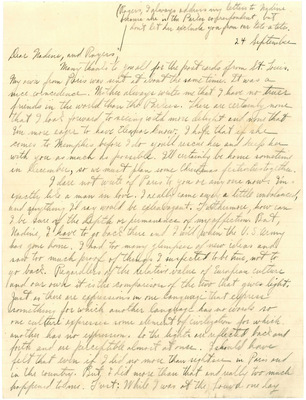 Rogers, I always address my letters to Nadine
because she is the Parlor correspondent but
don't let her exclude you from our tete a tete.
24 September
Dear Nadine, and Rogers,
Many thanks to you all for the post cards from St. Louis.
My own from Paris was sent at about the same time. It was a
nice coincidence. Mother always write me that I have no truer
friends in the world than the
There are certainly none
that I look forward to seeing with more delight and none that
I'm more eager to have
know. I hope that if she
comes to Memphis before I do you'll
her and keep her
with you as much as possible. I'll certainly be home sometime
in December, so we must plan some Christmas
I dare not write of Paris to you or any one now. I'm
exactly like a man in love. I realize I'm a little unbalanced,
and anything I say would be extravagant. Furthermore, how can
I be sure of the depth or permanence of my affection. But,
Nadine, I have to go back there and I will when the U.S. Army
has gone home. I had too many glimpses of new ideas and
saw too much proof of things I suspected to be true, not to
go back. Regardless of the relative value of European culture
and our own it is the comparison of the two that gives light.
Just as there are expressions in one language that express
something for which another language has no word so
one culture expresses some element of civilization for which
another has no expression. So the lights are reflected back and
forth and are perceptible almost at once. I should have
felt that even if I had no more than
in Paris and
in the country. But, I did more than that and really too much
happened to me. First: While I was at the
one day